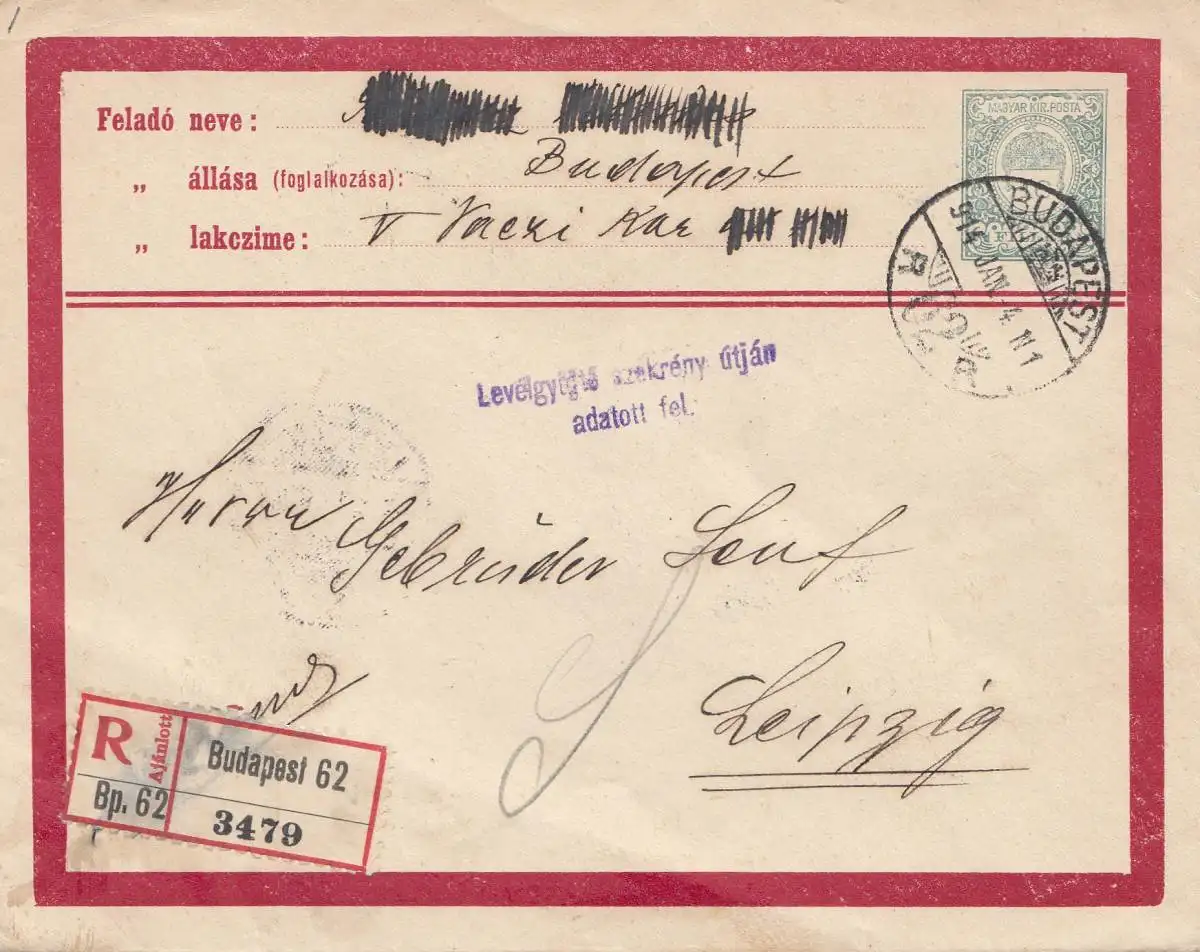 MAGYAR KIR. POSTA
Feladó neve:
„ állása (foglalkozása): Budapest
„ lakczime: V Vaczi Kar
BUDAPEST
914 JAN. -4. N1
62
Levélgyűjtő szekrény útján
adatott fel.
Herrn Gebrüder Senf
Leipzig
R Ajánlott
Budapest 62
Bp. 62
3479